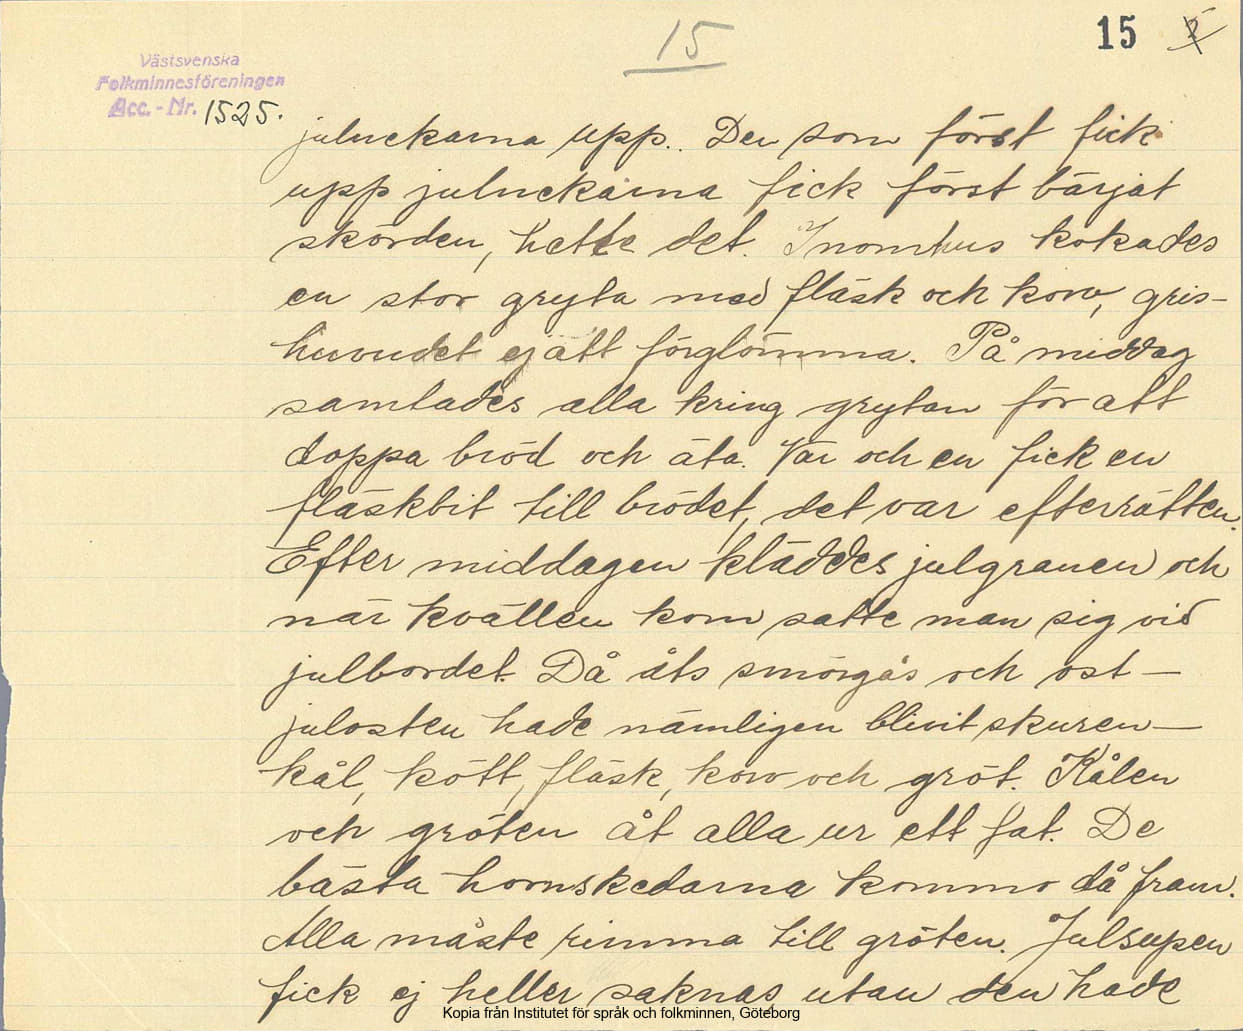 15
15
2
Västsvenska
Folkminnesföreningen
Acc. - Nr. 1525.
julneckarna upp. Den som först fick
upp julneckarna fick först bärjat
skörden, hette det. Inomhus kokades
en stor gryta med fläsk och korv, gris-
huvudet ej att förglömma. På middag
samlades alla kring grytan för att
doppa bröd och äta. Var och en fick en
fläskbit till brödet, det var efterrätten.
Efter middagen kläddes julgranen och
när kvällen kom satte man sig vid
julbordet. Då åts smörgås och ost —
julosten hade nämligen blivit skuren —
kål, kött, fläsk, korv och gröt. Kålen
och gröten åt alla ur ett fat. De
bästa hornskedarna kommo då fram.
Alla måste rimma till gröten. Julsupen
fick ej heller saknas utan den hade
Kopia från Institutet för språk och folkminnen, Göteborg